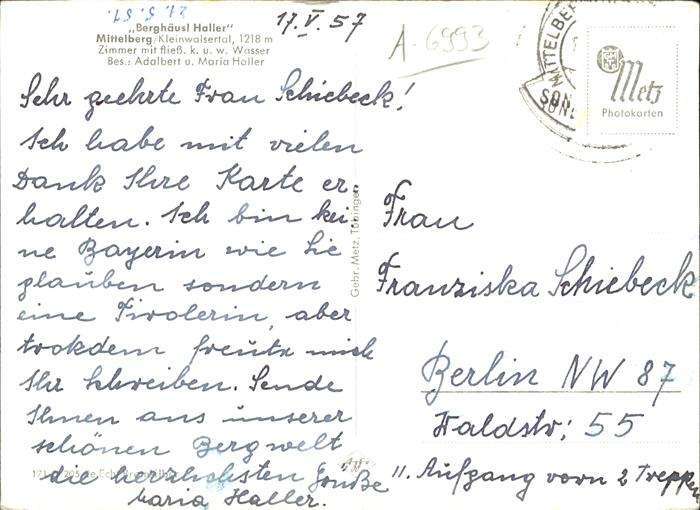 21. 5. 57.
17.V.57
A-6993
„Berghäusl Haller"
Mittelberg/Kleinwalsertal, 1218 m
Zimmer mit fließ. k. u. w. Wasser
Bes.: Adalbert u. Maria Haller
MITTELBER
Metz
Photokarten
Sehr geehrte Frau Schiebeck!
Ich habe mit vielen
Dank Ihre Karte er-
halten. Ich bin kei-
ne Bayerin wie Sie
glauben sondern
eine Tirolerin, aber
trotzdem freute mich
Ihr schreiben. Sende
Ihnen aus unserer
schönen Bergwelt
die herzlichsten Grüße
Maria Haller.
Gebr. Metz, Tübingen
Frau
Franziska Schiebeck
Berlin NW 87
Waldstr: 55
II. Aufgang vorn 2 Treppen